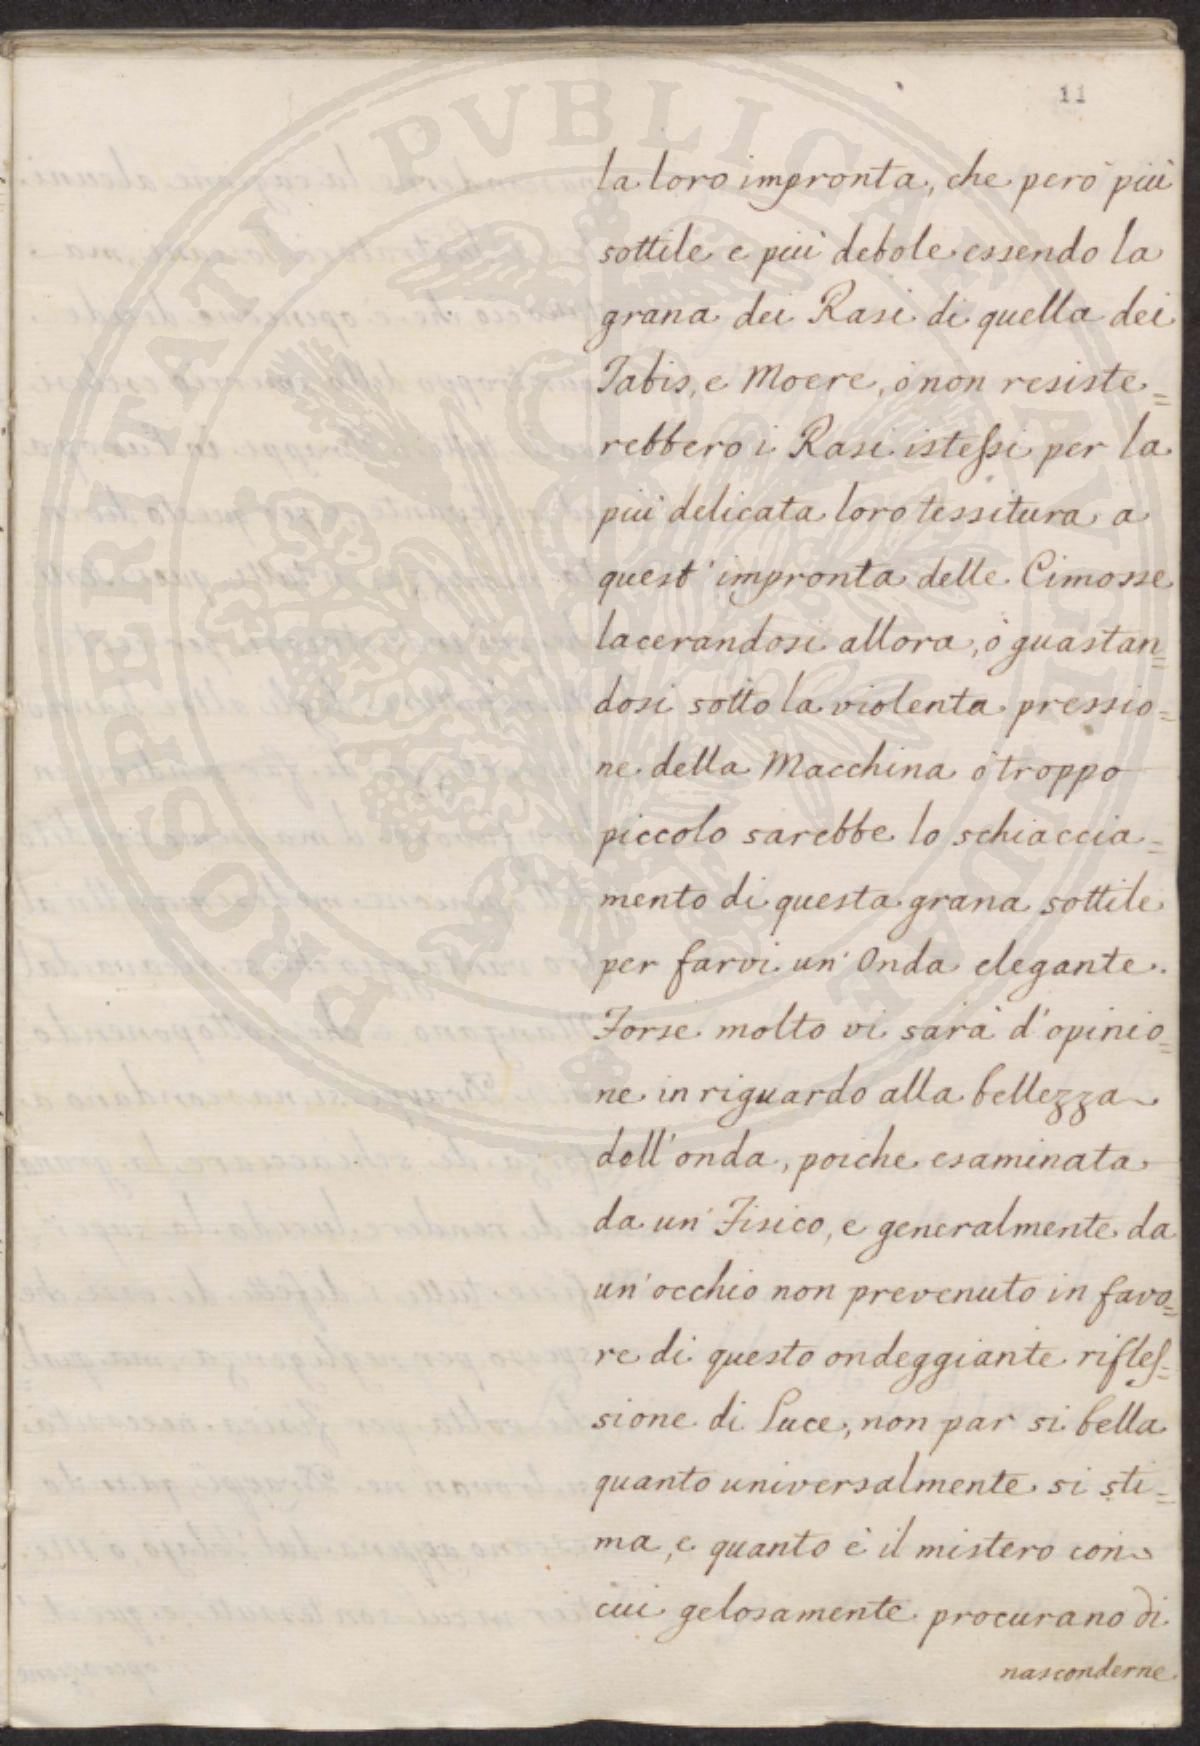 PROSPERITATI PVBLICAE AVGENDAE
11
la loro impronta, che però più
sottile e più debole essendo la
grana dei Rasi di quella dei
Tabis, e Moere, ò non resiste=
rebbero i Rasi istessi per la
più delicata loro tessitura a
quest' impronta delle Cimosse
lacerandosi allora, ò guastan=
dosi sotto la violenta pressio=
ne della Macchina ò troppo
piccolo sarebbe lo schiaccia=
mento di questa grana sottile
per farvi un' Onda elegante.
Forse molto vi sarà d'opinio=
ne in riguardo alla bellezza
dell'onda, poiche esaminata
da un' Fisico, e generalmente da
un' occhio non prevenuto in favo=
re di questo ondeggiante rifles=
sione di Luce, non par si bella
quanto universalmente si sti=
ma, e quanto è il mistero con
cui gelosamente procurano di
nasconderne